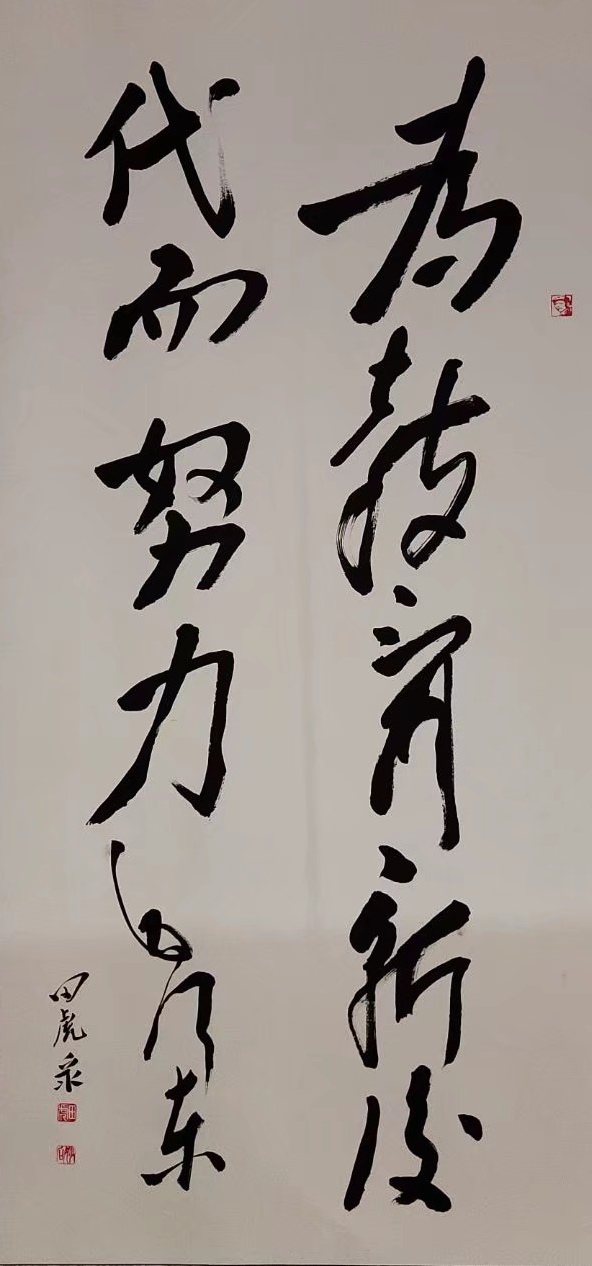 为教育新後
代而努力毛泽东
田虎